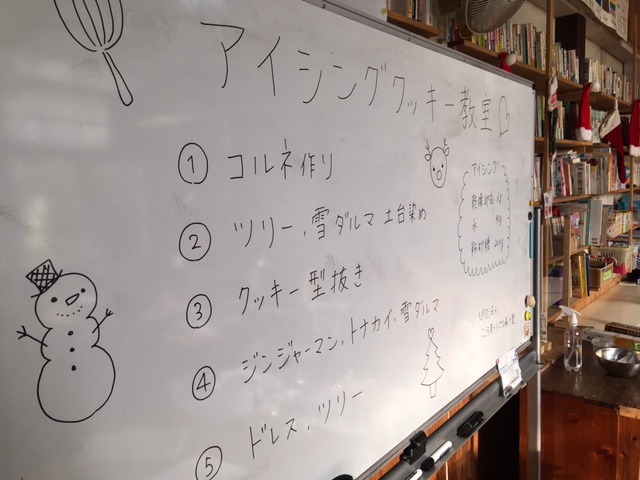 アイシングクッキー教室
① コルネ作り
② ツリー、雪ダルマ 土台染め
③ クッキー型抜き
④ ジンジャーマン、トナカイ、雪ダルマ
⑤ ドレス、ツリー
アイシング
乾燥卵白
水
粉砂糖 200g